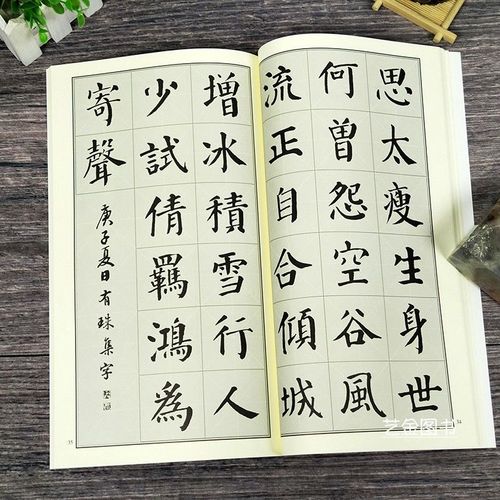 思太瘦生身世
何曾怨空谷風
流正自合傾城
34
增冰積雪行人
少試倩羈鴻為
寄聲
庚子夏日有珠集字
35
艺金图书